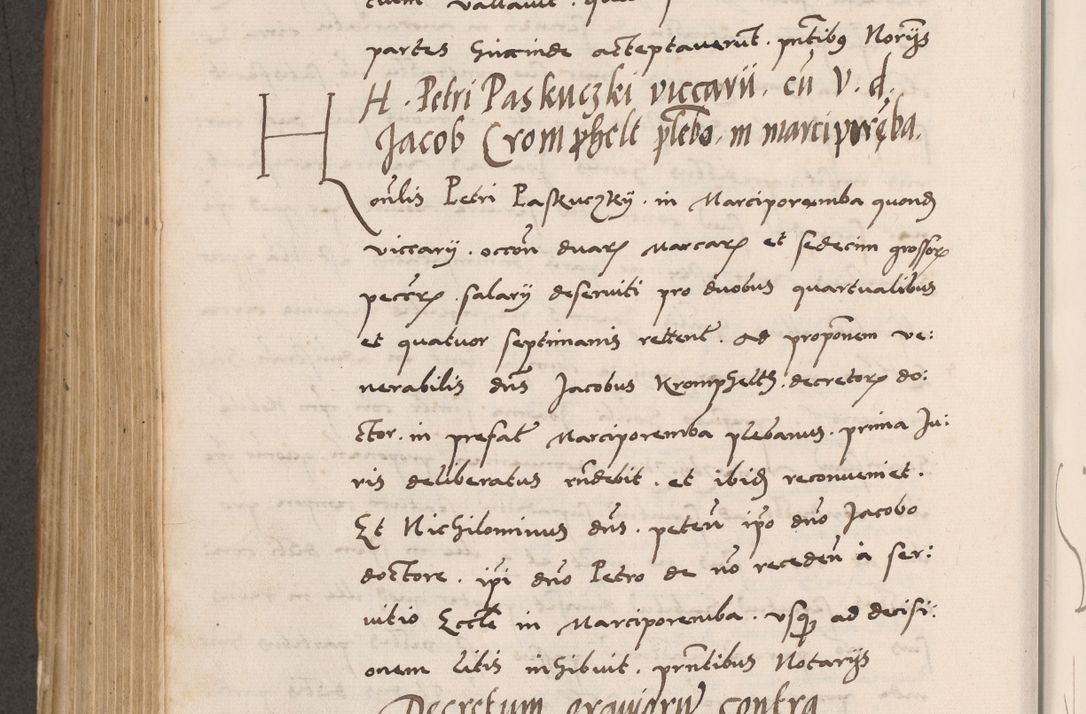 partes hincinde acceptaverunt . pntibus Norijs
H . Petri Paskuczki viccarii . cu V . d .
Jacob Cromphelt plebo . in marciporęba .
H onilis Petri Paskuczky . in Marciporemba quond
viccarij . occon duarum marcarum et sedecim grossorum
peccrum . salarij deserviti pro duobus quartualibus
et quatuor septimanis rettent . Ad proponem ve:
nerabilis dns Jacobus Kromphelth . decretorum do:
ctor . in prefat Marciporemba plebanus . prima Ju:
ris deliberatus rndebit . et ibid reconveniet .
Et Nichilominus dns . peten ipo dno Jacobo
doctore . ipi dno Petro de no receden a ser:
uitio Eccle in Marciporemba . usque ad decisi:
onem litis inhibuit . prntibus Notarijs
Decretum graviorum contra